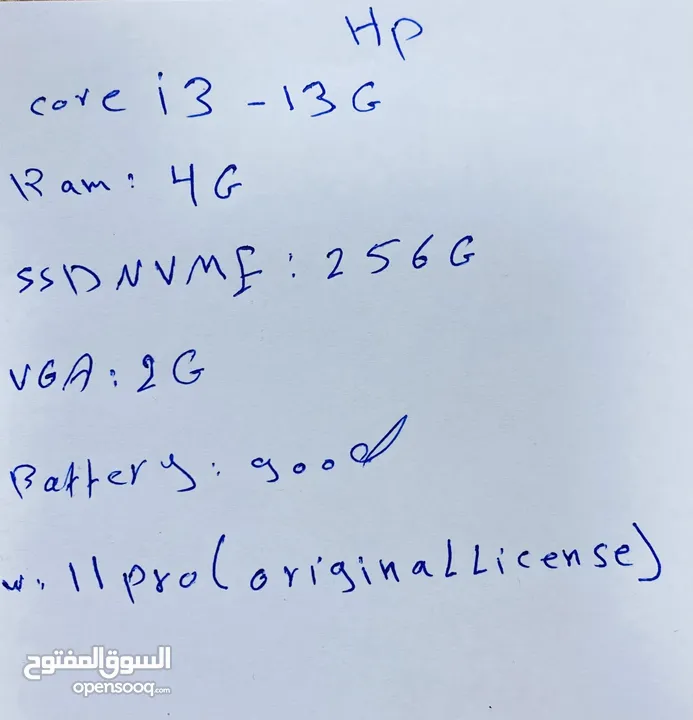 Hp
core i3 - 13G
Ram: 4G
SSD NVME: 256G
VGA: 2G
Battery: good
w. 11 pro (original License)
السوق المفتوح
opensooq.com